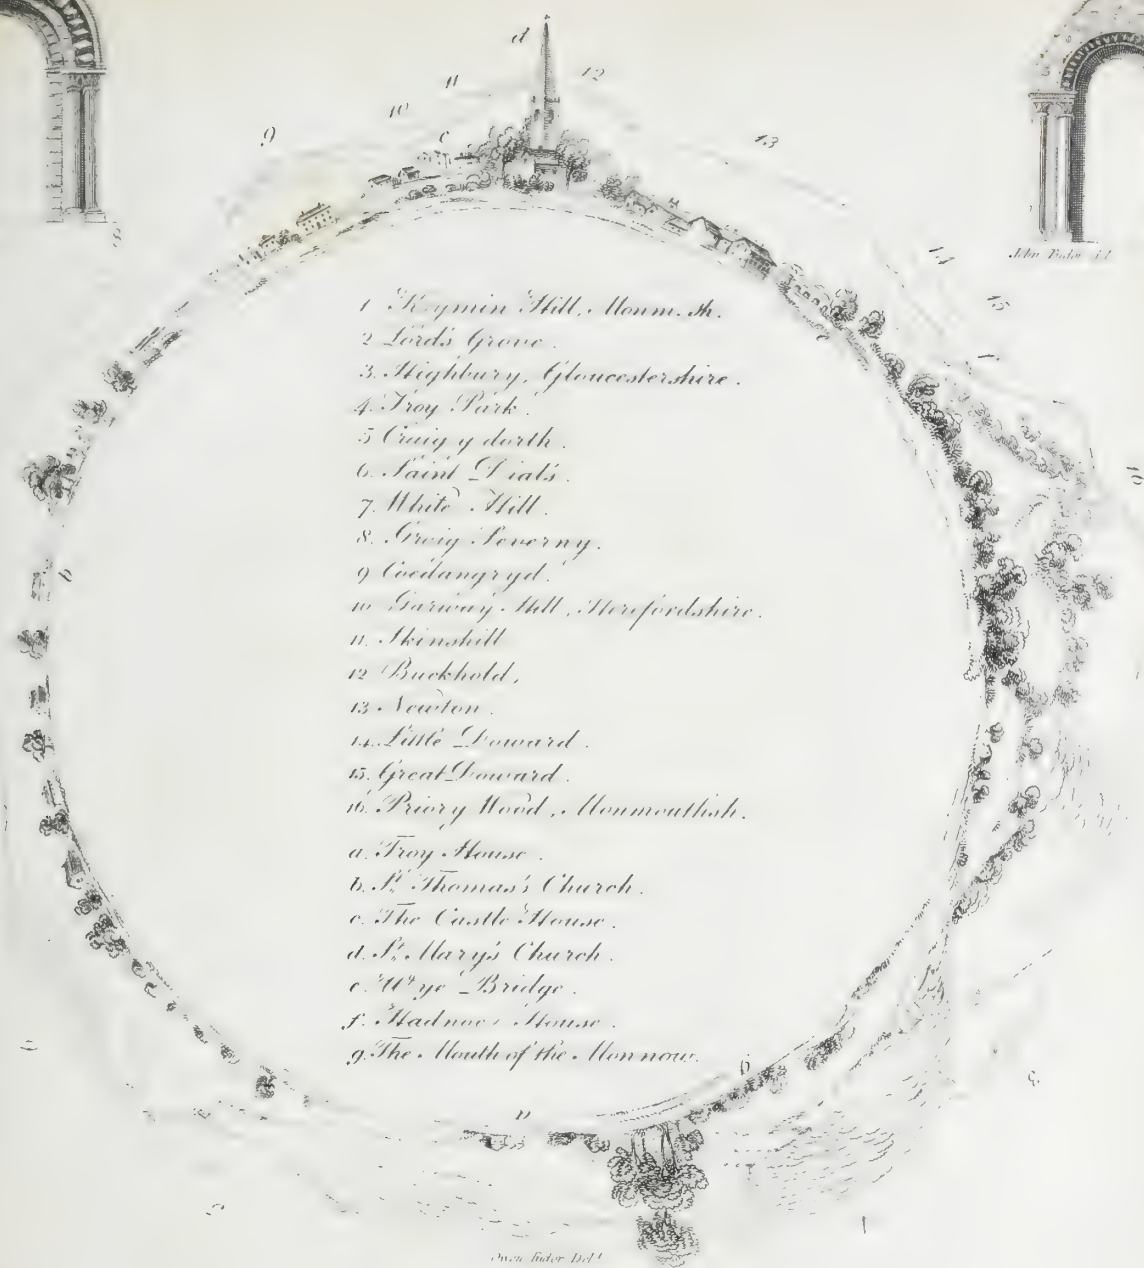 d
12
11
10
c
9
13
8
John Tudor del
14
15
e
1 Kymin Hill, Monm.sh.
2 Lord's Grove.
3. Highbury, Gloucestershire.
4. Troy Park.
5 Craig y dorth.
6. Saint Dial's.
7. White Hill.
8. Greig Severny.
9 Coedangryd.
10. Garway Hill, Herefordshire.
11. Skinshill
12 Buckhold,
13. Newton.
14. Little Doward.
15. Great Doward.
16. Priory Wood, Monmouthsh.
a. Troy House.
b. St. Thomas's Church.
c. The Castle House.
d. St. Mary's Church.
e. Wye Bridge.
f. Hadnock House.
g. The Mouth of the Monnow.
16
b
g
a
1
Owen Tudor Delt.